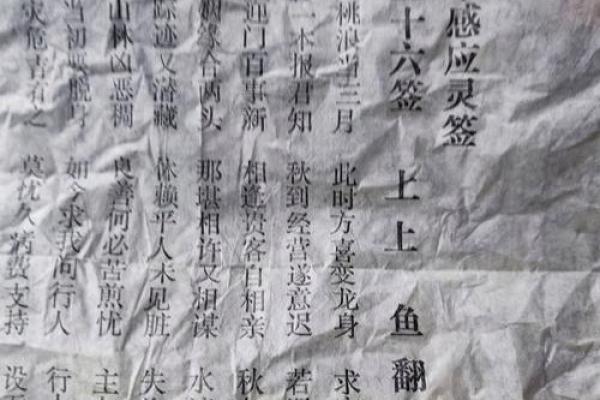 感应灵签
十六签 上上 鱼翻
桃浪当三月 此时方喜变龙身 求
一本报君知 秋到经营遂意迟 若
迎门百事新 相逢贵客自相亲 秋
姻缘合两头 那堪相许又谋 水
踪迹又潜藏 休赖平人未见脏 失
山林凶恶稠 良善何必苦煎忧 主
当初脱身 如今求我问行人 行
灾危害有之 莫忧久病费支持 设